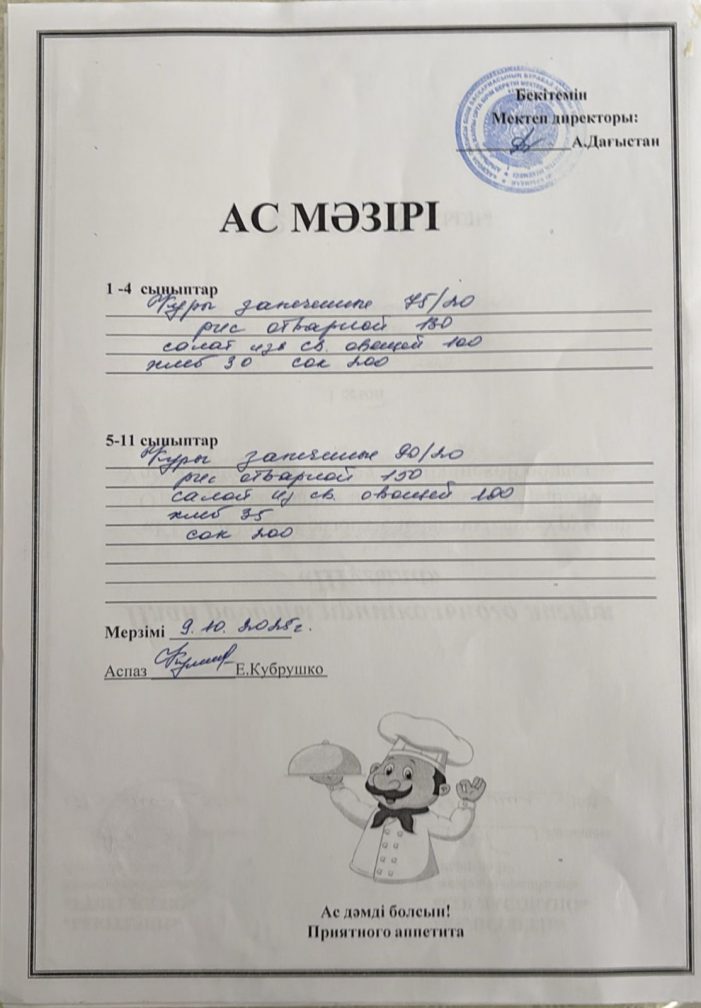 Бекітемін
Мектеп директоры:
А.Дағыстан
АС МӘЗІРІ
1 -4 сыныптар
Куры запеченные 75/20
рис отварной 130
салат из св. овощей 100
хлеб 30 сок 200
5-11 сыныптар
Куры запеченные 90/20
рис отварной 150
салат из св. овощей 100
хлеб 35
сок 200
Мерзімі 9.10.2025г.
Аспаз Е.Кубрушко
Ас дәмді болсын!
Приятного аппетита